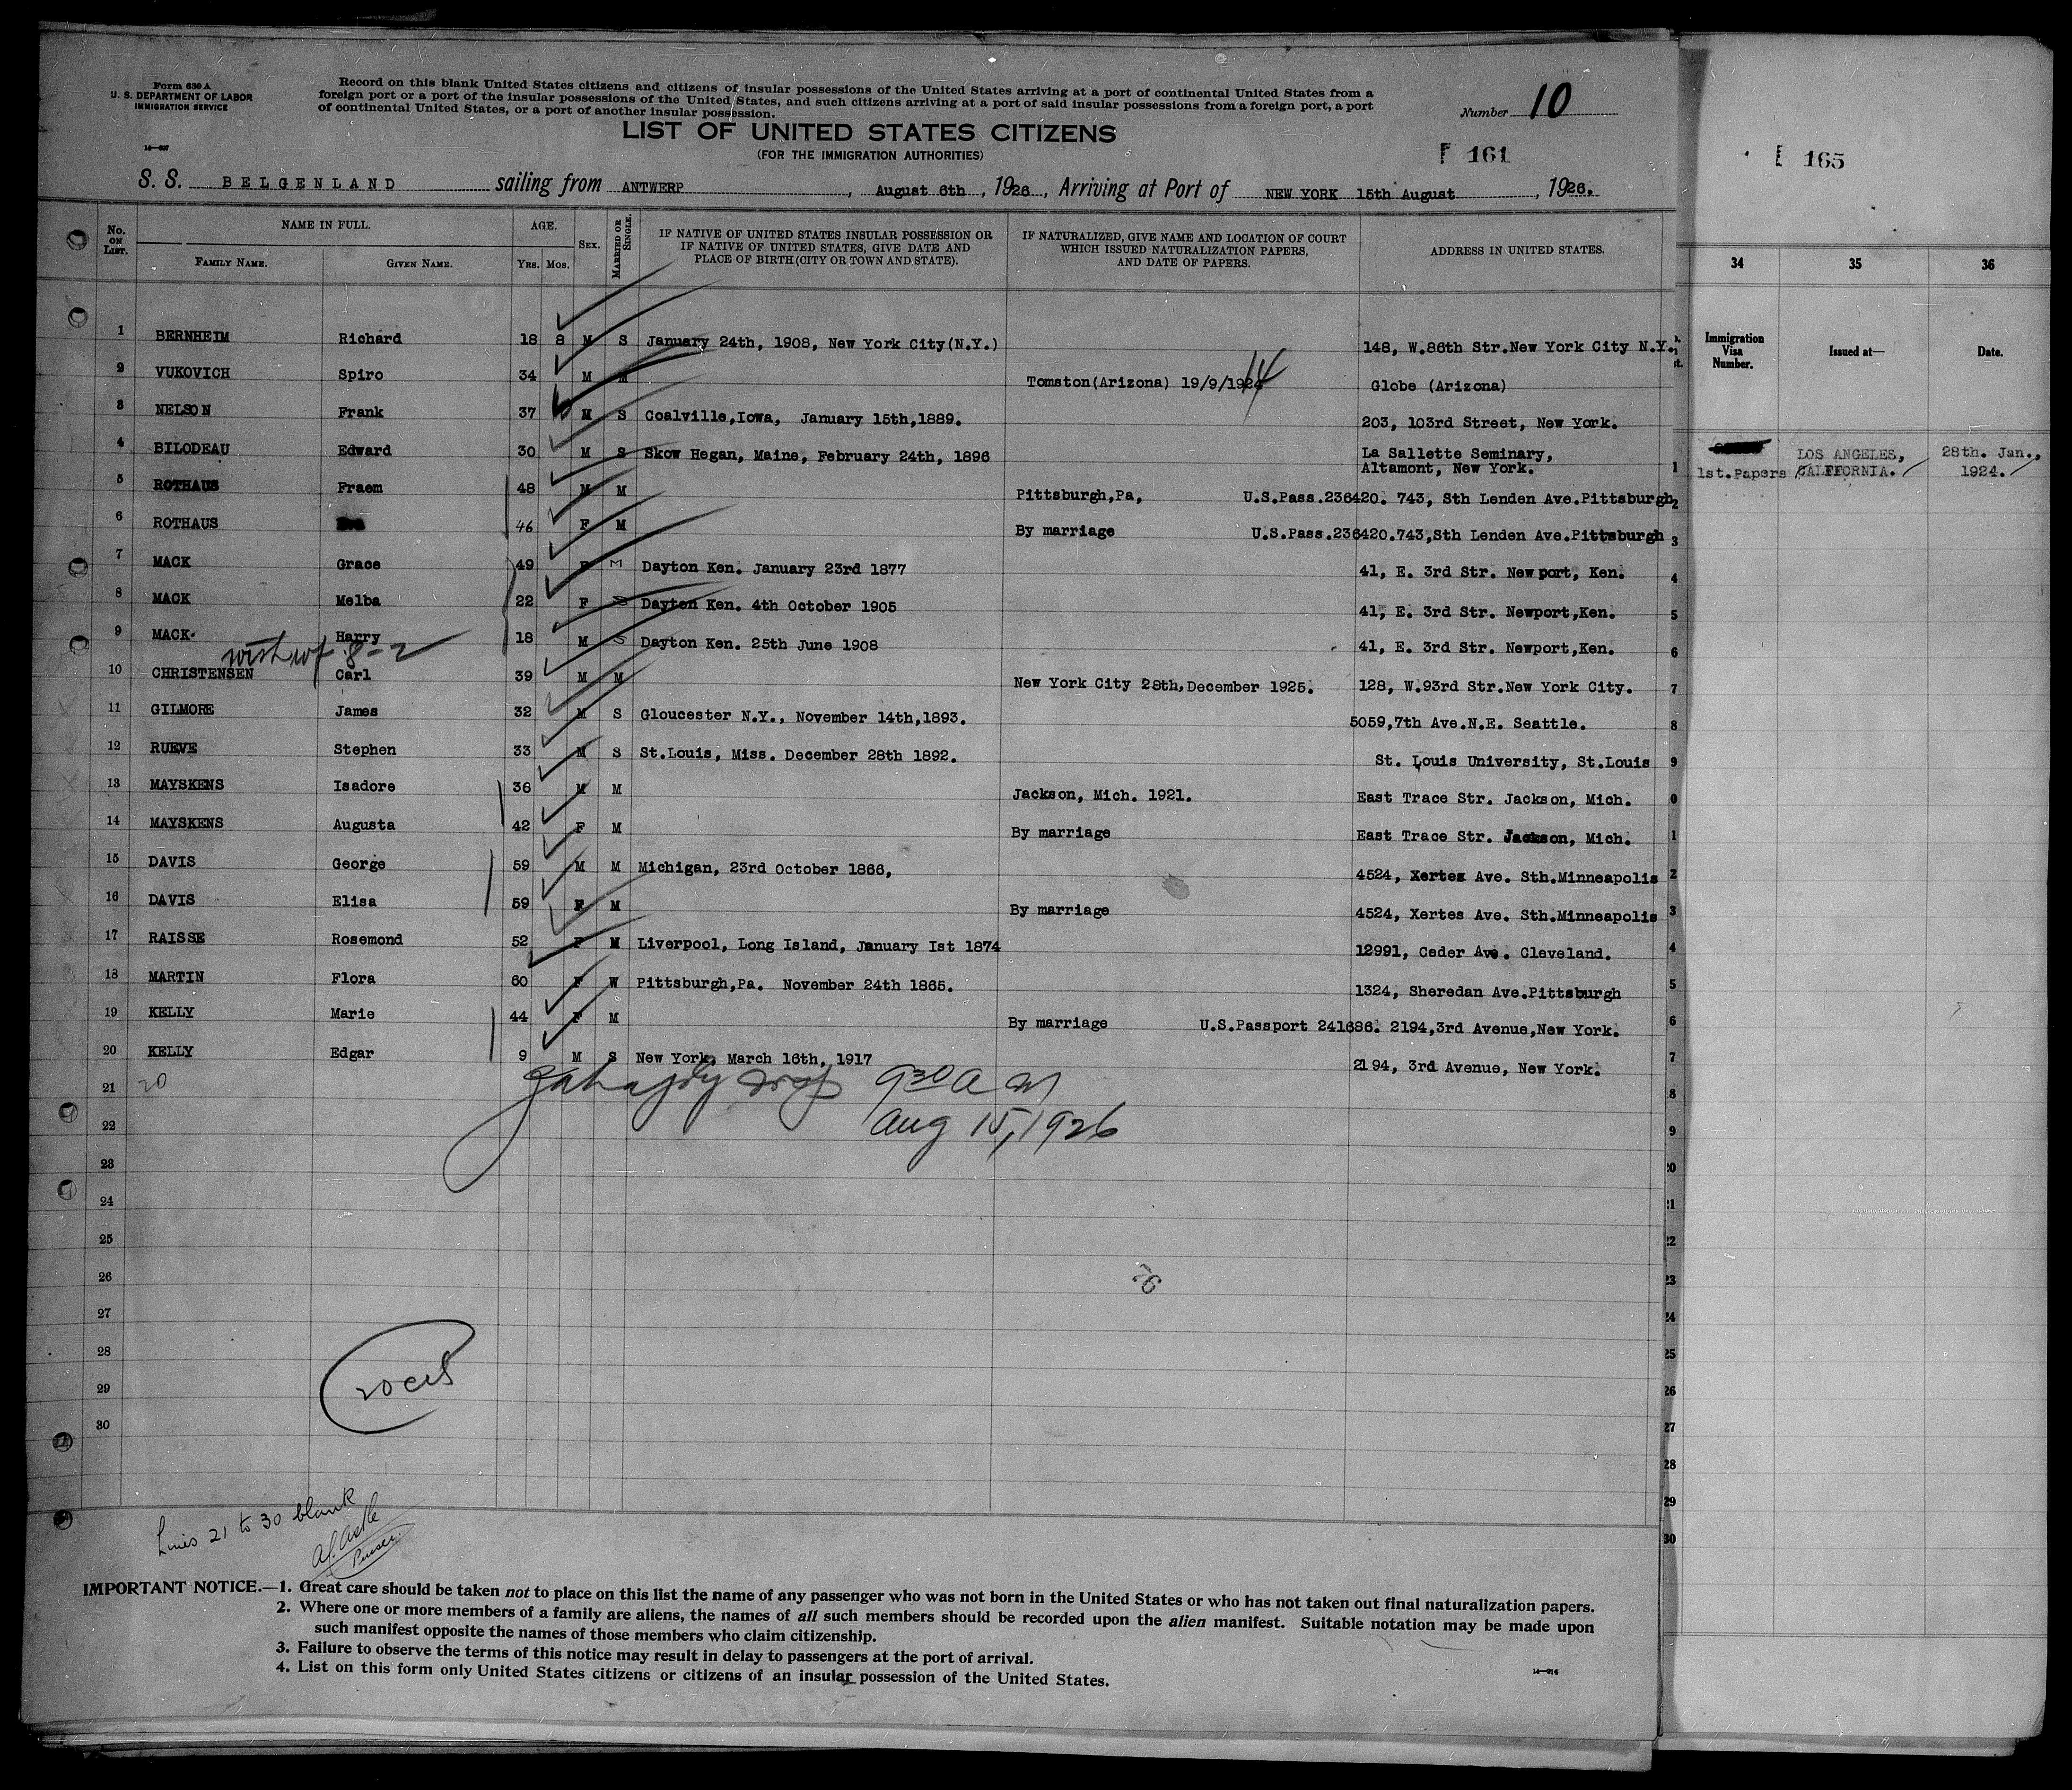 Form 630 A
U. S. DEPARTMENT OF LABOR
IMMIGRATION SERVICE
Record on this blank United States citizens and citizens of insular possessions of the United States arriving at a port of continental United States from a
foreign port or a port of the insular possessions of the United States, and such citizens arriving at a port of said insular possessions from a foreign port, a port
of continental United States, or a port of another insular possession.
Number 10
LIST OF UNITED STATES CITIZENS
(FOR THE IMMIGRATION AUTHORITIES)
161
165
S. S. BELGENLAND sailing from ANTWERP, August 6th, 1926, Arriving at Port of NEW YORK 15th August, 1926.
No. ON LIST. NAME IN FULL. AGE. SEX. MARRIED OR SINGLE. IF NATIVE OF UNITED STATES INSULAR POSSESSION OR IF NATIVE OF UNITED STATES, GIVE DATE AND PLACE OF BIRTH (CITY OR TOWN AND STATE). IF NATURALIZED, GIVE NAME AND LOCATION OF COURT WHICH ISSUED NATURALIZATION PAPERS, AND DATE OF PAPERS. ADDRESS IN UNITED STATES.
FAMILY NAME. GIVEN NAME. YRS. MOS.
34 35 36
Immigration Visa Number. Issued at— Date.
1 BERNHEIM Richard 18 8 M S January 24th, 1908, New York City(N.Y.) 148, W.86th Str.New York City N.Y.
2 VUKOVICH Spiro 34 M M Tomston(Arizona) 19/9/19 14 Globe (Arizona)
3 NELSON Frank 37 M S Coalville,Iowa, January 15th,1889. 203, 103rd Street, New York.
4 BILODEAU Edward 30 M S Skow Hegan, Maine, February 24th, 1896 La Sallette Seminary,
Altamont, New York.
1st.Papers LOS ANGELES, CALIFORNIA. 28th. Jan., 1924.
5 ROTHAUS Fraem 48 M M Pittsburgh,Pa, U.S.Pass.236420. 743, Sth Lenden Ave.Pittsburgh
6 ROTHAUS 46 F M By marriage U.S.Pass.236420.743,Sth Lenden Ave.Pittsburgh
7 MACK Grace 49 F M Dayton Ken. January 23rd 1877 41, E. 3rd Str. Newport, Ken.
8 MACK Melba 22 F S Dayton Ken. 4th October 1905 41, E. 3rd Str. Newport,Ken.
9 MACK Harry 18 M S Dayton Ken. 25th June 1908 41, E. 3rd Str. Newport,Ken.
8-2
10 CHRISTENSEN Carl 39 M M New York City 28th,December 1925. 128, W.93rd Str.New York City.
11 GILMORE James 32 M S Gloucester N.Y., November 14th,1893. 5059,7th Ave.N.E. Seattle.
12 RUEVE Stephen 33 M S St.Louis, Miss. December 28th 1892. St. Louis University, St.Louis
13 MAYSKENS Isadore 36 M M Jackson, Mich. 1921. East Trace Str. Jackson, Mich.
14 MAYSKENS Augusta 42 F M By marriage East Trace Str. Jackson, Mich.
15 DAVIS George 59 M M Michigan, 23rd October 1866, 4524, Xertes Ave. Sth.Minneapolis
16 DAVIS Elisa 59 F M By marriage 4524, Xertes Ave. Sth.Minneapolis
17 RAISSE Rosemond 52 F M Liverpool, Long Island, January Ist 1874 12991, Ceder Ave. Cleveland.
18 MARTIN Flora 60 F W Pittsburgh,Pa. November 24th 1865. 1324, Sheredan Ave.Pittsburgh
19 KELLY Marie 44 F M By marriage U.S.Passport 241686. 2194,3rd Avenue,New York.
20 KELLY Edgar 9 M S New York, March 16th, 1917 2194, 3rd Avenue, New York.
21 20
930 A M
22 Aug 15, 1926
23
24
25
26
27
28
29
30
Lines 21 to 30 blank
Purser.
IMPORTANT NOTICE.—1. Great care should be taken not to place on this list the name of any passenger who was not born in the United States or who has not taken out final naturalization papers.
2. Where one or more members of a family are aliens, the names of all such members should be recorded upon the alien manifest. Suitable notation may be made upon
such manifest opposite the names of those members who claim citizenship.
3. Failure to observe the terms of this notice may result in delay to passengers at the port of arrival.
4. List on this form only United States citizens or citizens of an insular possession of the United States.